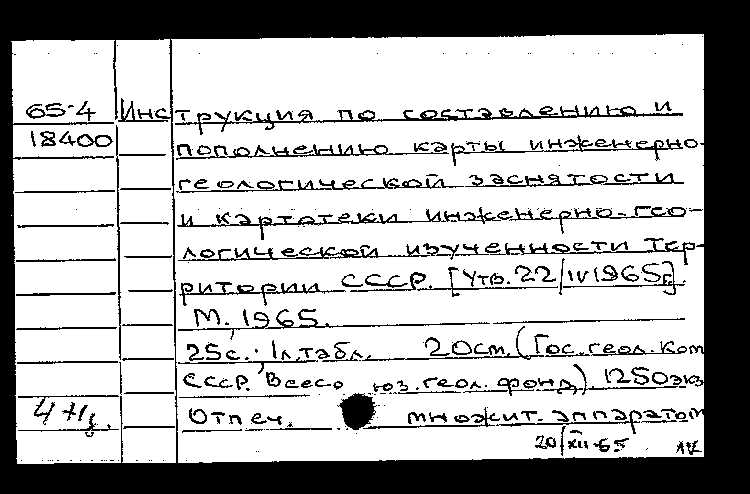 65-4 Инструкция по составлению и
18400 пополнению карты инженерно-
геологической заснятости
и картотеки инженерно-гео-
логической изученности тер-
ритории СССР. [Утв. 22/IV 1965г.]
М. 1965.
25с.; 1л. табл. 20см. (Гос. геол. ком
СССР. Всесоюз. геол. фонд). 1250экз
Отпеч. множит. аппаратом
20/XII-65